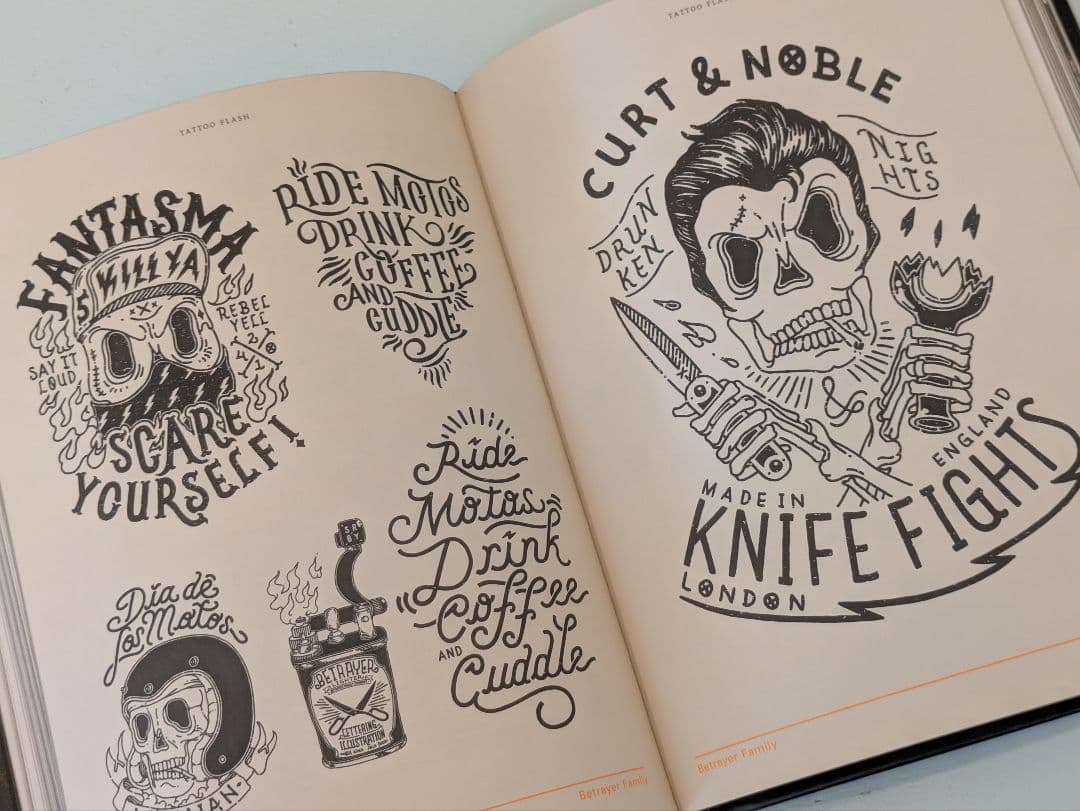 TATTOO FLASH
FANTASMA
WILL YA
SAY IT
LOUD
REBEL
YELL
SCARE
YOURSELF!
RIDE MOTOS
DRINK
COFFEE
AND
CUDDLE
Ride
Motos
Drink
Coffee
AND
Cuddle
Día de
los Motos
BETRAYER
LIGHTER
LETTERING
ILLUSTRATION
Betrayer Family
TATTOO FLASH
CURT & NOBLE
DRUN
KEN
NIG
HTS
&
MADE IN
ENGLAND
KNIFE FIGHTS
LONDON
Betrayer Family